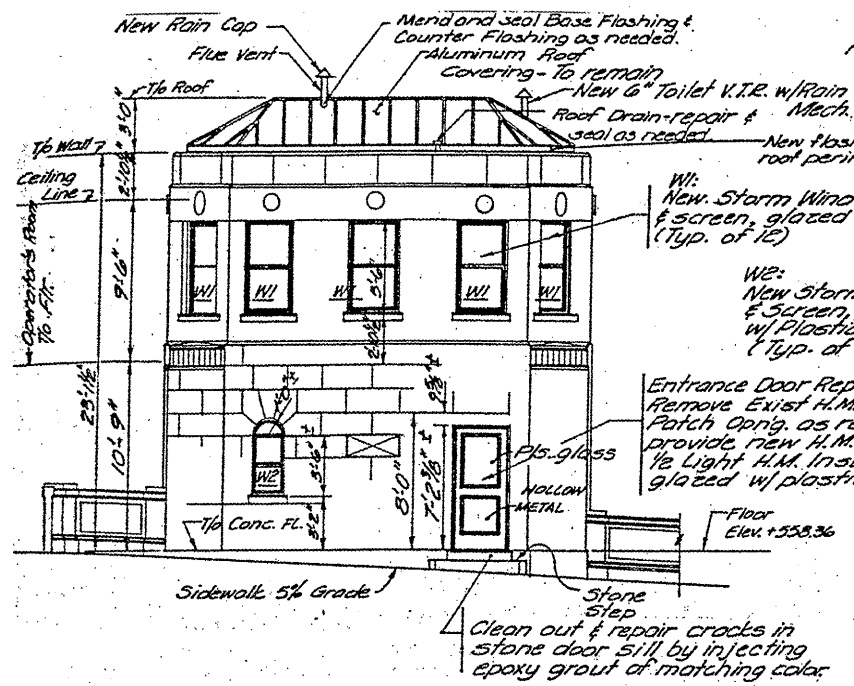 New Rain Cap
Flue Vent
Mend and seal Base Flashing &
Counter Flashing as needed.
Aluminum Roof
Covering - To remain
New 6" Toilet V.T.R. w/Rain
Mech.
Roof Drain-repair &
seal as needed
New flas
roof perin
T/o Roof
3'-0"
T/o Wall
2'-10½"
Ceiling
Line
9'-6"
Operator's Room
T/o Flr.
23'-1½"
10'-9"
W1:
New Storm Wind
& screen, glazed
(Typ. of 12)
W2:
New Storm
& Screen,
w/ Plastic
(Typ. of
W1
W1
W1
W1
5'-6"
2'-0½"
Entrance Door Rep
Remove Exist H.M.
Patch Opn'g. as re
provide new H.M.
½ Light H.M. Ins
glazed w/ plasti
W2
3'-6"
3'-2"
8'-0"
Pls. glass
HOLLOW
METAL
T/o Conc. FL.
Floor
Elev. +558.36
Sidewalk 5% Grade
Stone
Step
Clean out & repair cracks in
stone door sill by injecting
epoxy grout of matching color.